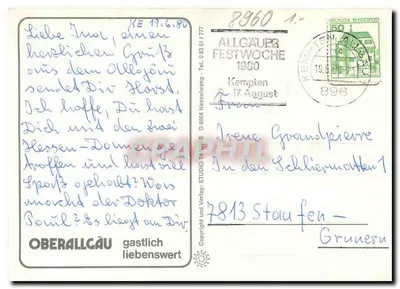 KE 19.6.80
8960 1.-
Liebe Irma, einen
herzlichen Gruß
aus dem Allgäu
sendet Dir Horst.
Ich hoffe, Du hast
Dich mit den zwei
Hessen-Damen ge-
troffen und hast viel
Spaß gehabt? Was
macht der Doktor
Paul? Es liegt an Dir
OBERALLGÄU
gastlich
liebenswert
Copyright und Verlag: STUDIO
D-8964 Nesselwang - Tel. 0 83 61 / 777
ALLGÄUER
FESTWOCHE
1980
Kempten
17. August
KEMPTEN
896
DEUTSCHE BUNDESPOST
50
Frau
Irene Grandpierre
In den Schliermatten 1
7813 Staufen-
Grunern